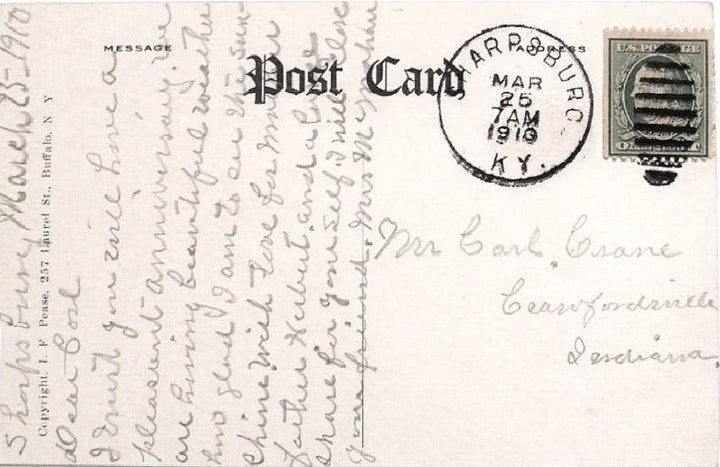 MESSAGE
ADDRESS
Post Card
SHARPSBURG
MAR
25
7AM
1910
KY.
U.S. POSTAGE
Copyright, I. F. Pease, 257 Laurel St., Buffalo, N Y
Sharpsburg March 25-1910
Dear Carl
I trust you will have a
pleasent anniversary. we
are having beautiful weather
how glad I am to see the sun
shine. With Love for Mother
father Herbert, and a large
share for your self I will close
your friend. Mrs
Mr Carl, Crane
Crawfordsville
Indiana.